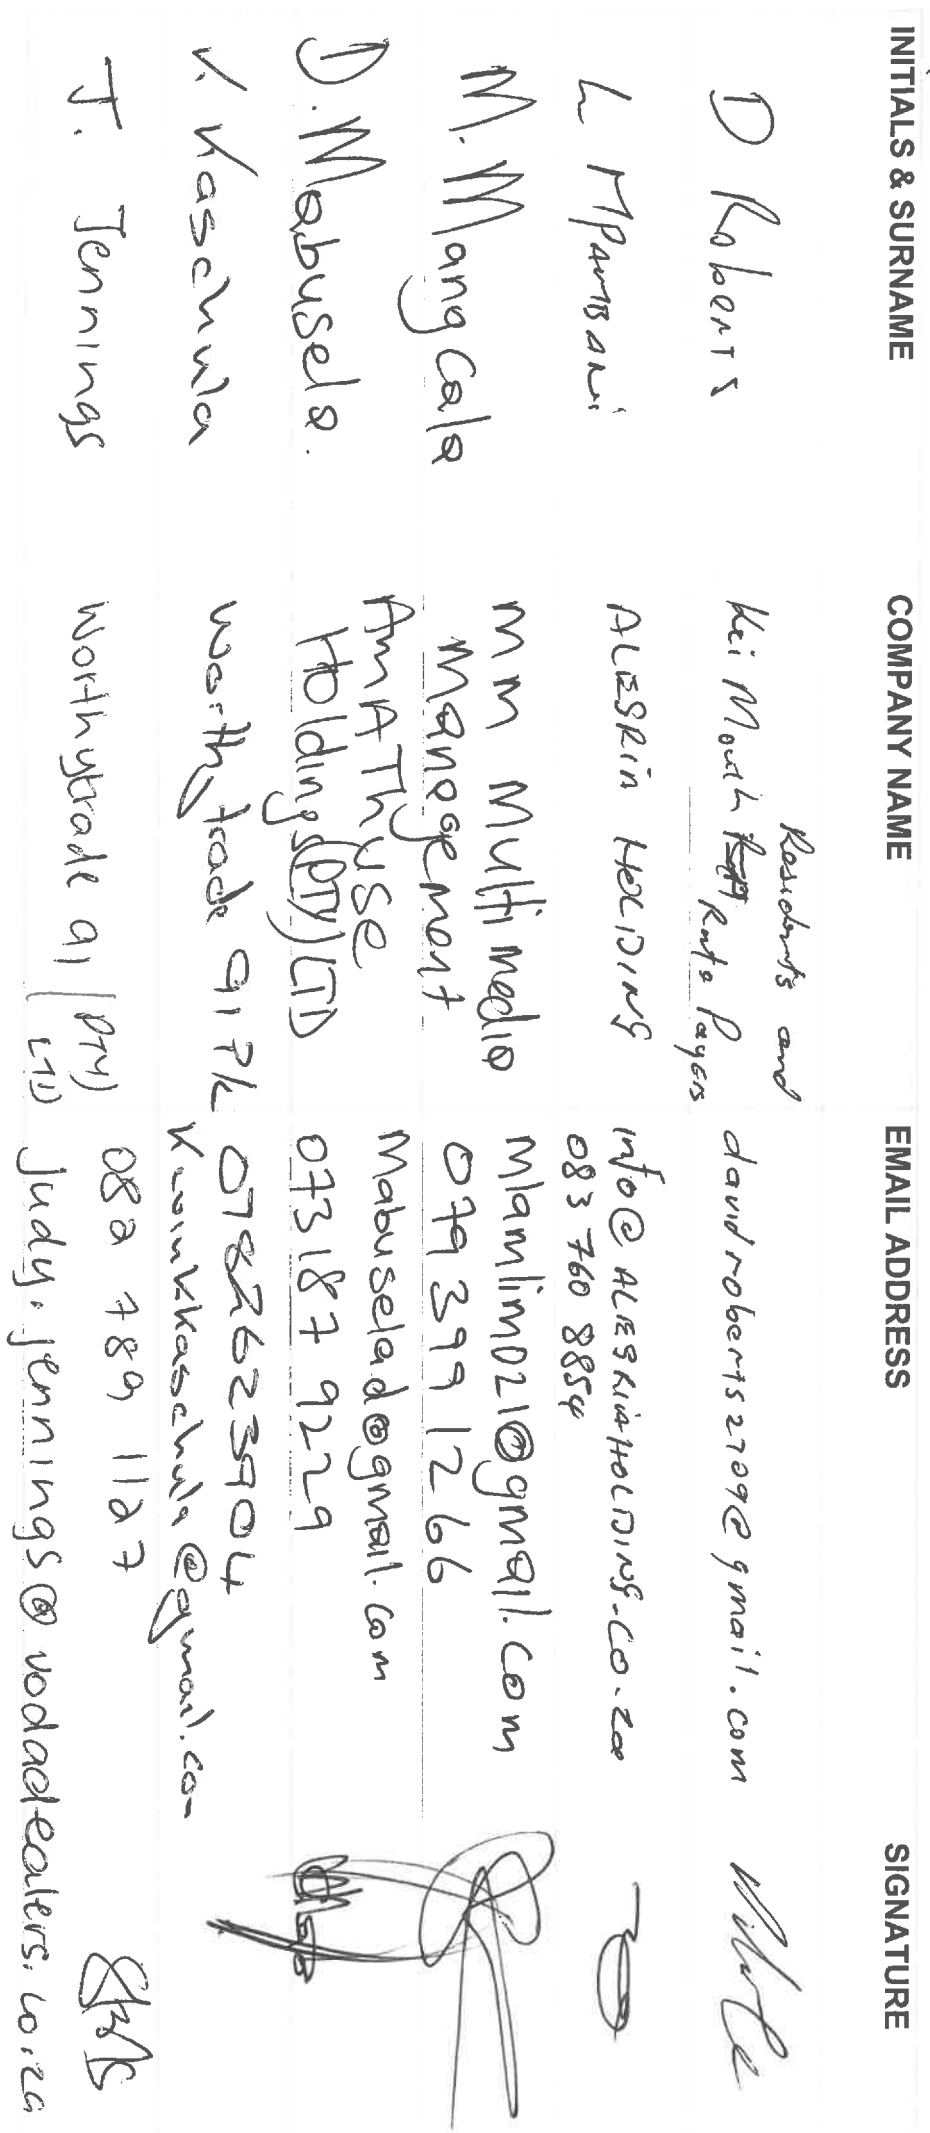 INITIALS & SURNAME COMPANY NAME EMAIL ADDRESS SIGNATURE
D Roberts
Residents and
Kei Mouth Rate Payers
davidroberts2709@gmail.com
L MPAMBANi
ALESRIA HOLDING
info@ALESRIAHOLDING.CO.Za
083 760 8854
M. Mangcala
MM Multimedia
Management
Mlamlim021@gmail.com
079 399 1266
D. Mabusela.
AmAThuse
Holdings (PTY) LTD
Mabuselad@gmail.com
073 187 9229
K. Kaschula
Worthytrade 91 Pk
0782623904
Kwinkkaschula@gmail.com
J. Jennings
Worthytrade 91 (PTY)
LTD
082 789 1127
judy.jennings@vodadealers.co.za